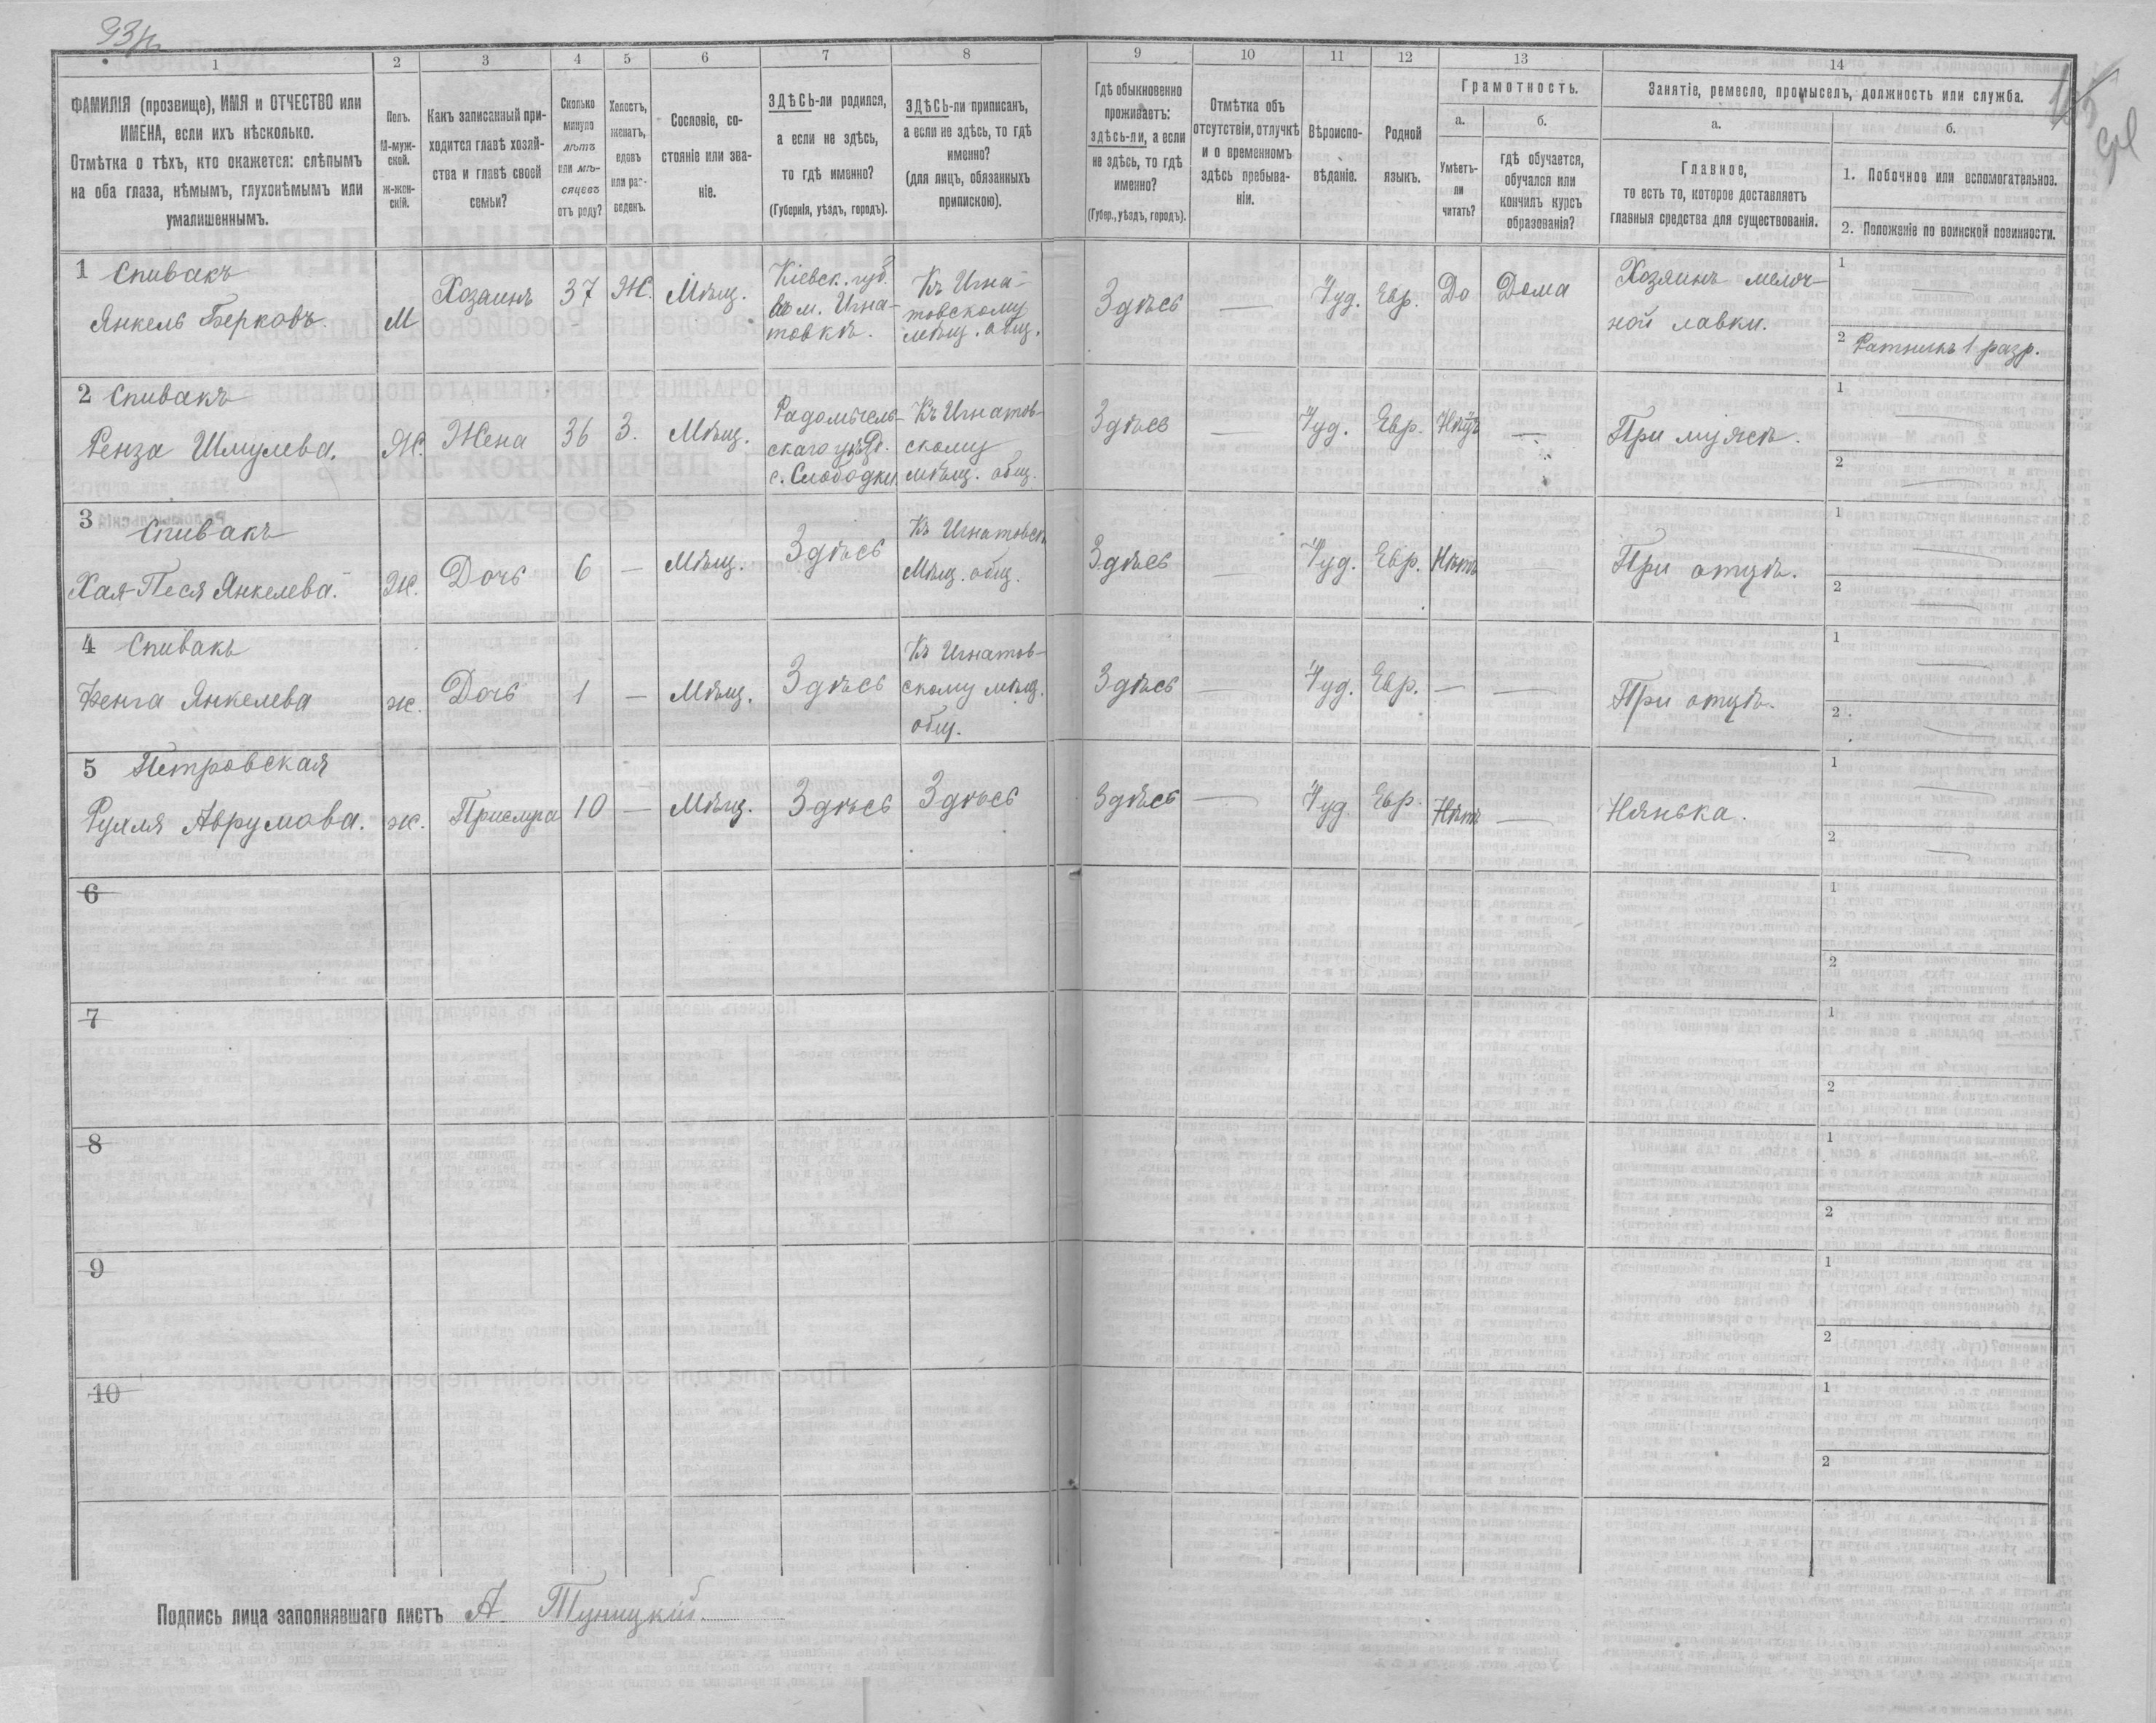 93
1
2
3
4
5
6
7
8
9
10
11
12
13
14
ФАМИЛІЯ (прозвище), ИМЯ и ОТЧЕСТВО или
ИМЕНА, если ихъ нѣсколько.
Отмѣтка о тѣхъ, кто окажется: слѣпымъ
на оба глаза, нѣмымъ, глухонѣмымъ или
умалишеннымъ.
Полъ.
М-муж-
ской.
ж-жен-
скій.
Какъ записанный при-
ходится главѣ хозяй-
ства и главѣ своей
семьи?
Сколько
минуло
лѣтъ
или мѣ-
сяцевъ
отъ роду?
Холостъ,
женатъ,
вдовъ
или раз-
веденъ.
Сословіе, со-
стояніе или зва-
ніе.
ЗДѢСЬ-ли родился,
а если не здѣсь,
то гдѣ именно?
(Губернія, уѣздъ, городъ).
ЗДѢСЬ-ли приписанъ,
а если не здѣсь, то гдѣ
именно?
(для лицъ, обязанныхъ
припискою).
Гдѣ обыкновенно
проживаетъ:
здѣсь-ли, а если
не здѣсь, то гдѣ
именно?
(Губер., уѣздъ, городъ).
Отмѣтка объ
отсутствіи, отлучкѣ
и о временномъ
здѣсь пребыва-
ніи.
Вѣроиспо-
вѣданіе.
Родной
языкъ.
Грамотность.
а.
Умѣетъ-
ли
читать?
б.
гдѣ обучается,
обучался или
кончилъ курсъ
образованія?
Занятіе, ремесло, промыселъ, должность или служба.
а.
Главное,
то есть то, которое доставляетъ
главныя средства для существованія.
б.
1. Побочное или вспомогательное.
2. Положеніе по воинской повинности.
1 Спивакъ
Янкель Берковъ.
М
Хозяинъ
37
Ж.
Мѣщ.
Кіевск. губ.
въ м. Игна-
товкѣ.
Къ Игна-
товскому
мѣщ. общ.
Здѣсь
—
Іуд.
Евр.
Да
Дома
Хозяинъ мелоч-
ной лавки.
1 —
2 Ратникъ 1 разр.
2 Спивакъ
Рейза Шмулева.
Ж.
Жена
36
З.
Мѣщ.
Радомысль-
скаго уѣзд.
с. Слободки
Къ Игнатов-
скому
мѣщ. общ.
Здѣсь
—
Іуд.
Евр.
Нѣтъ
—
При мужѣ.
1 —
2 —
3 Спивакъ
Хая-Песя Янкелева.
Ж.
Дочь
6
—
Мѣщ.
Здѣсь
Къ Игнатовск.
Мѣщ. общ.
Здѣсь
—
Іуд.
Евр.
Нѣтъ
—
При отцѣ.
1 —
2 —
4 Спивакъ
Фейга Янкелева
ж.
Дочь
1
—
Мѣщ.
Здѣсь
Къ Игнатов-
скому мѣщ.
общ.
Здѣсь
Іуд.
Евр.
—
—
При отцѣ.
1 —
2 —
5 Петровская
Рухля Аврумова.
ж.
Прислуга
10
—
Мѣщ.
Здѣсь
Здѣсь
Здѣсь
—
Іуд
Евр.
Нѣтъ
—
Нянька.
1 —
2 —
6
1
2
7
1
2
8
1
2
9
1
2
10
1
2
Подпись лица заполнявшаго листъ А.